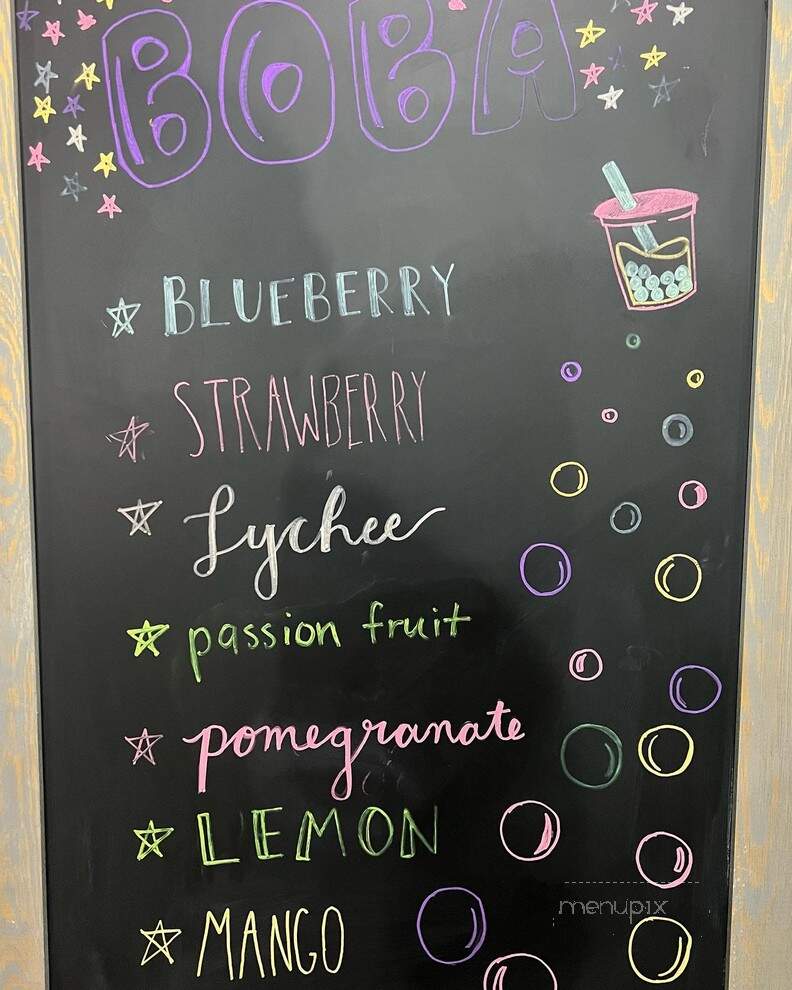 BOBA
BLUEBERRY
STRAWBERRY
Lychee
passion fruit
pomegranate
LEMON
MANGO
menupix